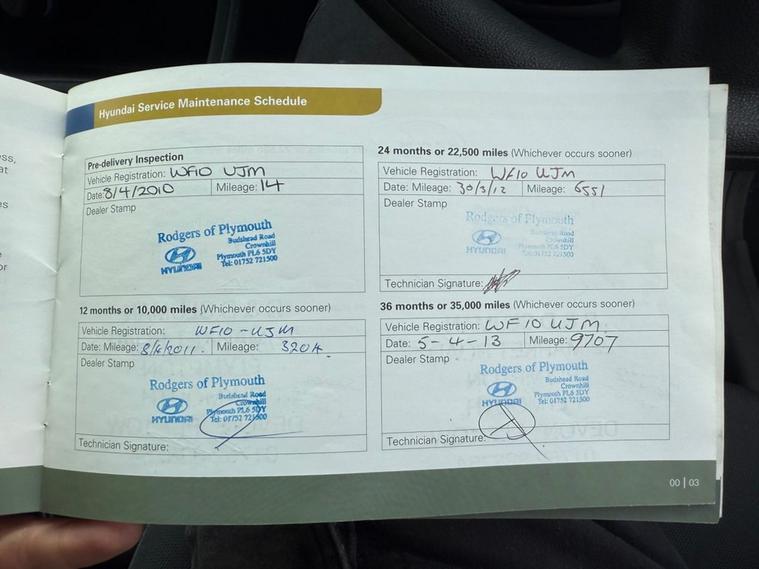 ess,
at
es
e
or
Hyundai Service Maintenance Schedule
Pre-delivery Inspection
Vehicle Registration: WF10 UJM
Date: 8/4/2010 Mileage: 14
Dealer Stamp
Rodgers of Plymouth
Budshead Road
Crownhill
Plymouth PL6 5DY
Tel: 01752 721500
HYUNDAI
12 months or 10,000 miles (Whichever occurs sooner)
Vehicle Registration: WF10-UJM
Date: Mileage: 8/4/2011. Mileage: 3204
Dealer Stamp
Rodgers of Plymouth
Budshead Road
Crownhill
Plymouth PL6 5DY
Tel: 01752 721500
HYUNDAI
Technician Signature:
24 months or 22,500 miles (Whichever occurs sooner)
Vehicle Registration: WF10 UJM
Date: Mileage: 30/3/12 Mileage: 6551
Dealer Stamp
Rodgers of Plymouth
Budshead Road
Crownhill
Plymouth PL6 5DY
Tel: 01752 721500
HYUNDAI
Technician Signature:
36 months or 35,000 miles (Whichever occurs sooner)
Vehicle Registration: WF10 UJM
Date: 5-4-13 Mileage: 9707
Dealer Stamp
Rodgers of Plymouth
Budshead Road
Crownhill
Plymouth PL6 5DY
Tel: 01752 721500
HYUNDAI
Technician Signature:
00 | 03